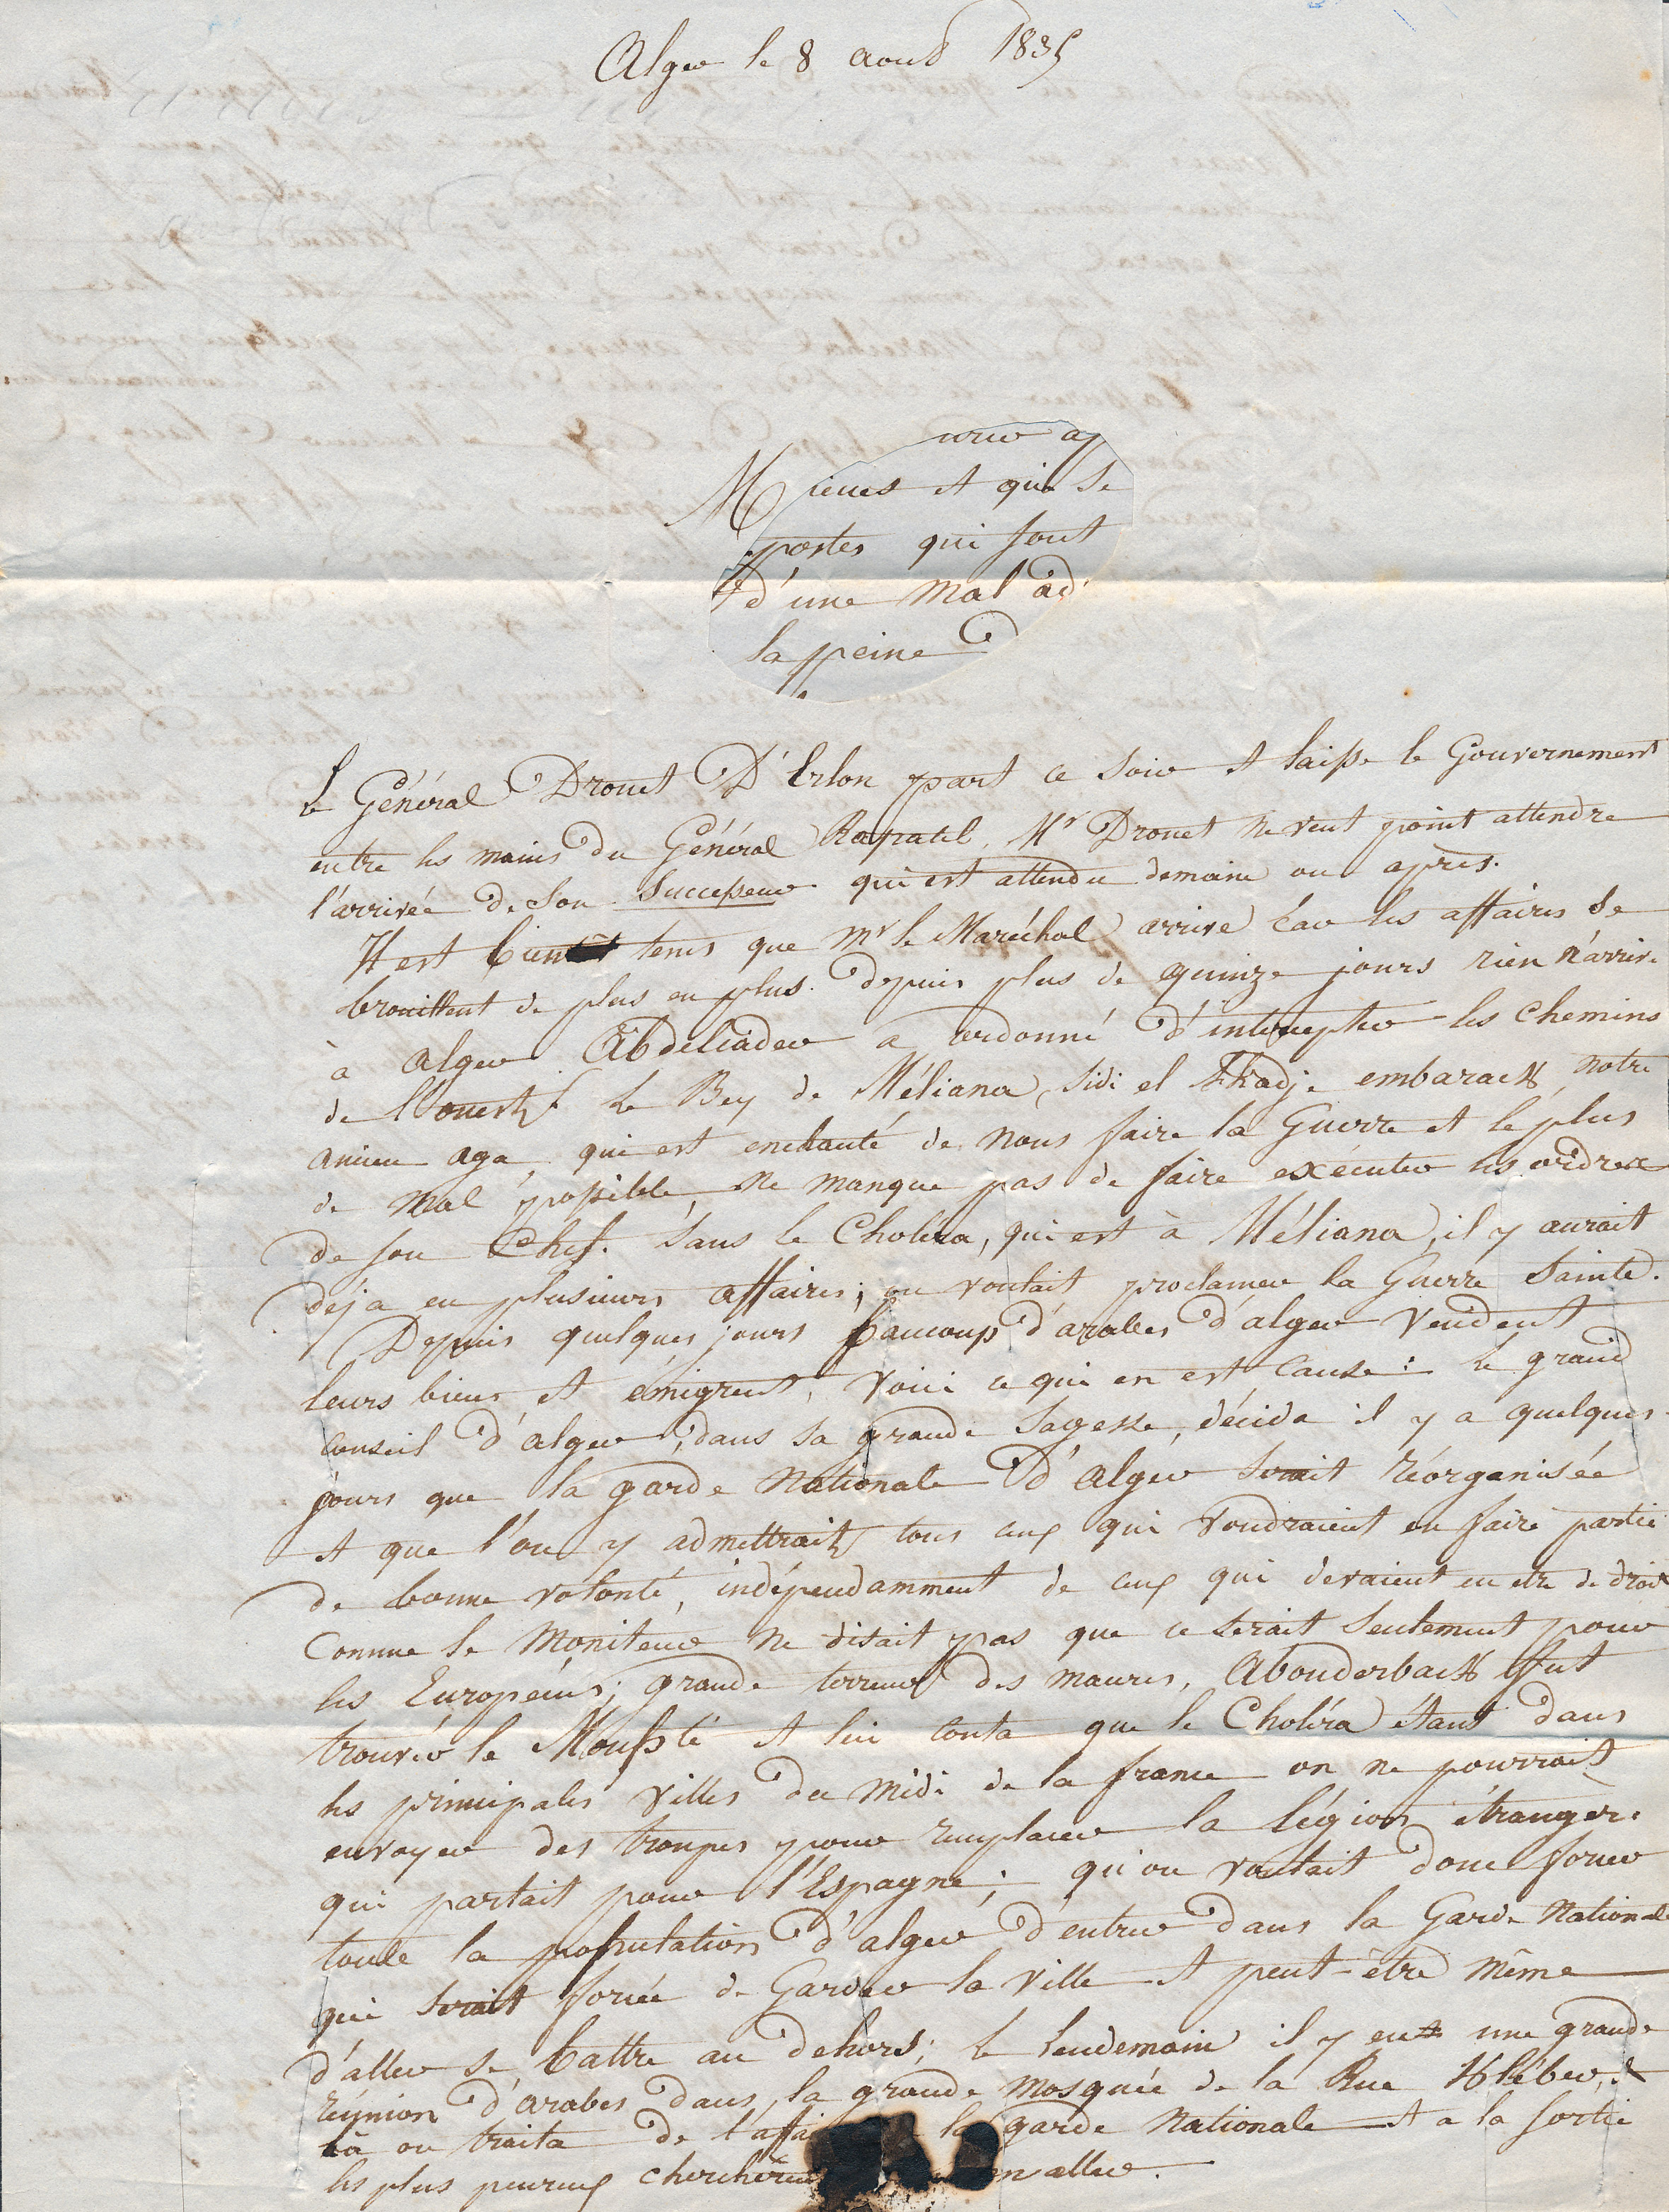 Alger le 8 aout 1835
M
ieues et qui se
postes qui sont
d'une mal ad
la peine
Le Général Drouet D'Erlon part ce soir et laisse le Gouvernement
entre les mains du Général Rapatel. Mr Drouet ne veut point attendre
l'arrivée de son Successeur qui est attendu demain ou après.
Il est bien tems que Mr le Maréchal arrive car les affaires se
brouillent de plus en plus. depuis plus de quinze jours rien n'arrive
à alger. Abdeliader a ordonné d'intercepter les chemins
de l'ouest. Le Bey de Méliana, Sidi el Hhadje embarack, notre
ancien aga, qui est enchanté de nous faire la Guerre et le plus
de mal possible, ne manque pas de faire exécuter les ordres
de son Chef. Sans le Cholera, qui est à Méliana, il y aurait
déja eu plusieurs affaires; on voulait proclamer la Guerre Sainte.
Depuis quelques jours beaucoup d'arabes d'alger vendent
leurs biens et émigrent, voici ce qui en est cause: le grand
conseil d'alger, dans sa grande sagesse, décida il y a quelques
jours que la garde Nationale d'alger serait réorganisée
et que l'on y admettrait tous ceux qui voudraient en faire partie
de bonne volonté, indépendamment de ceux qui devaient en etre de droit
Comme le Moniteur ne disait pas que ce serait seulement pour
les Européens; grande terreur des maures, Abouderback fut
trouver le Moufti et lui conta que le Choléra étant dans
les principales villes du Midi de la france on ne pourrait
envoyer des troupes pour remplacer la légion étrangère
qui partait pour l'Espagne; qu'on voulait donc forcer
toute la population d'alger d'entrer dans la Garde Nationale
qui serait forcée de Garder la ville et peut-être même
d'aller se battre au dehors; le lendemain il y eut une grande
réunion d'arabes dans la grande Mosquée de la Rue Kléber, &
là on traita de l'affai la garde Nationale et a la sortie
les plus peureux cherchèrent en aller.